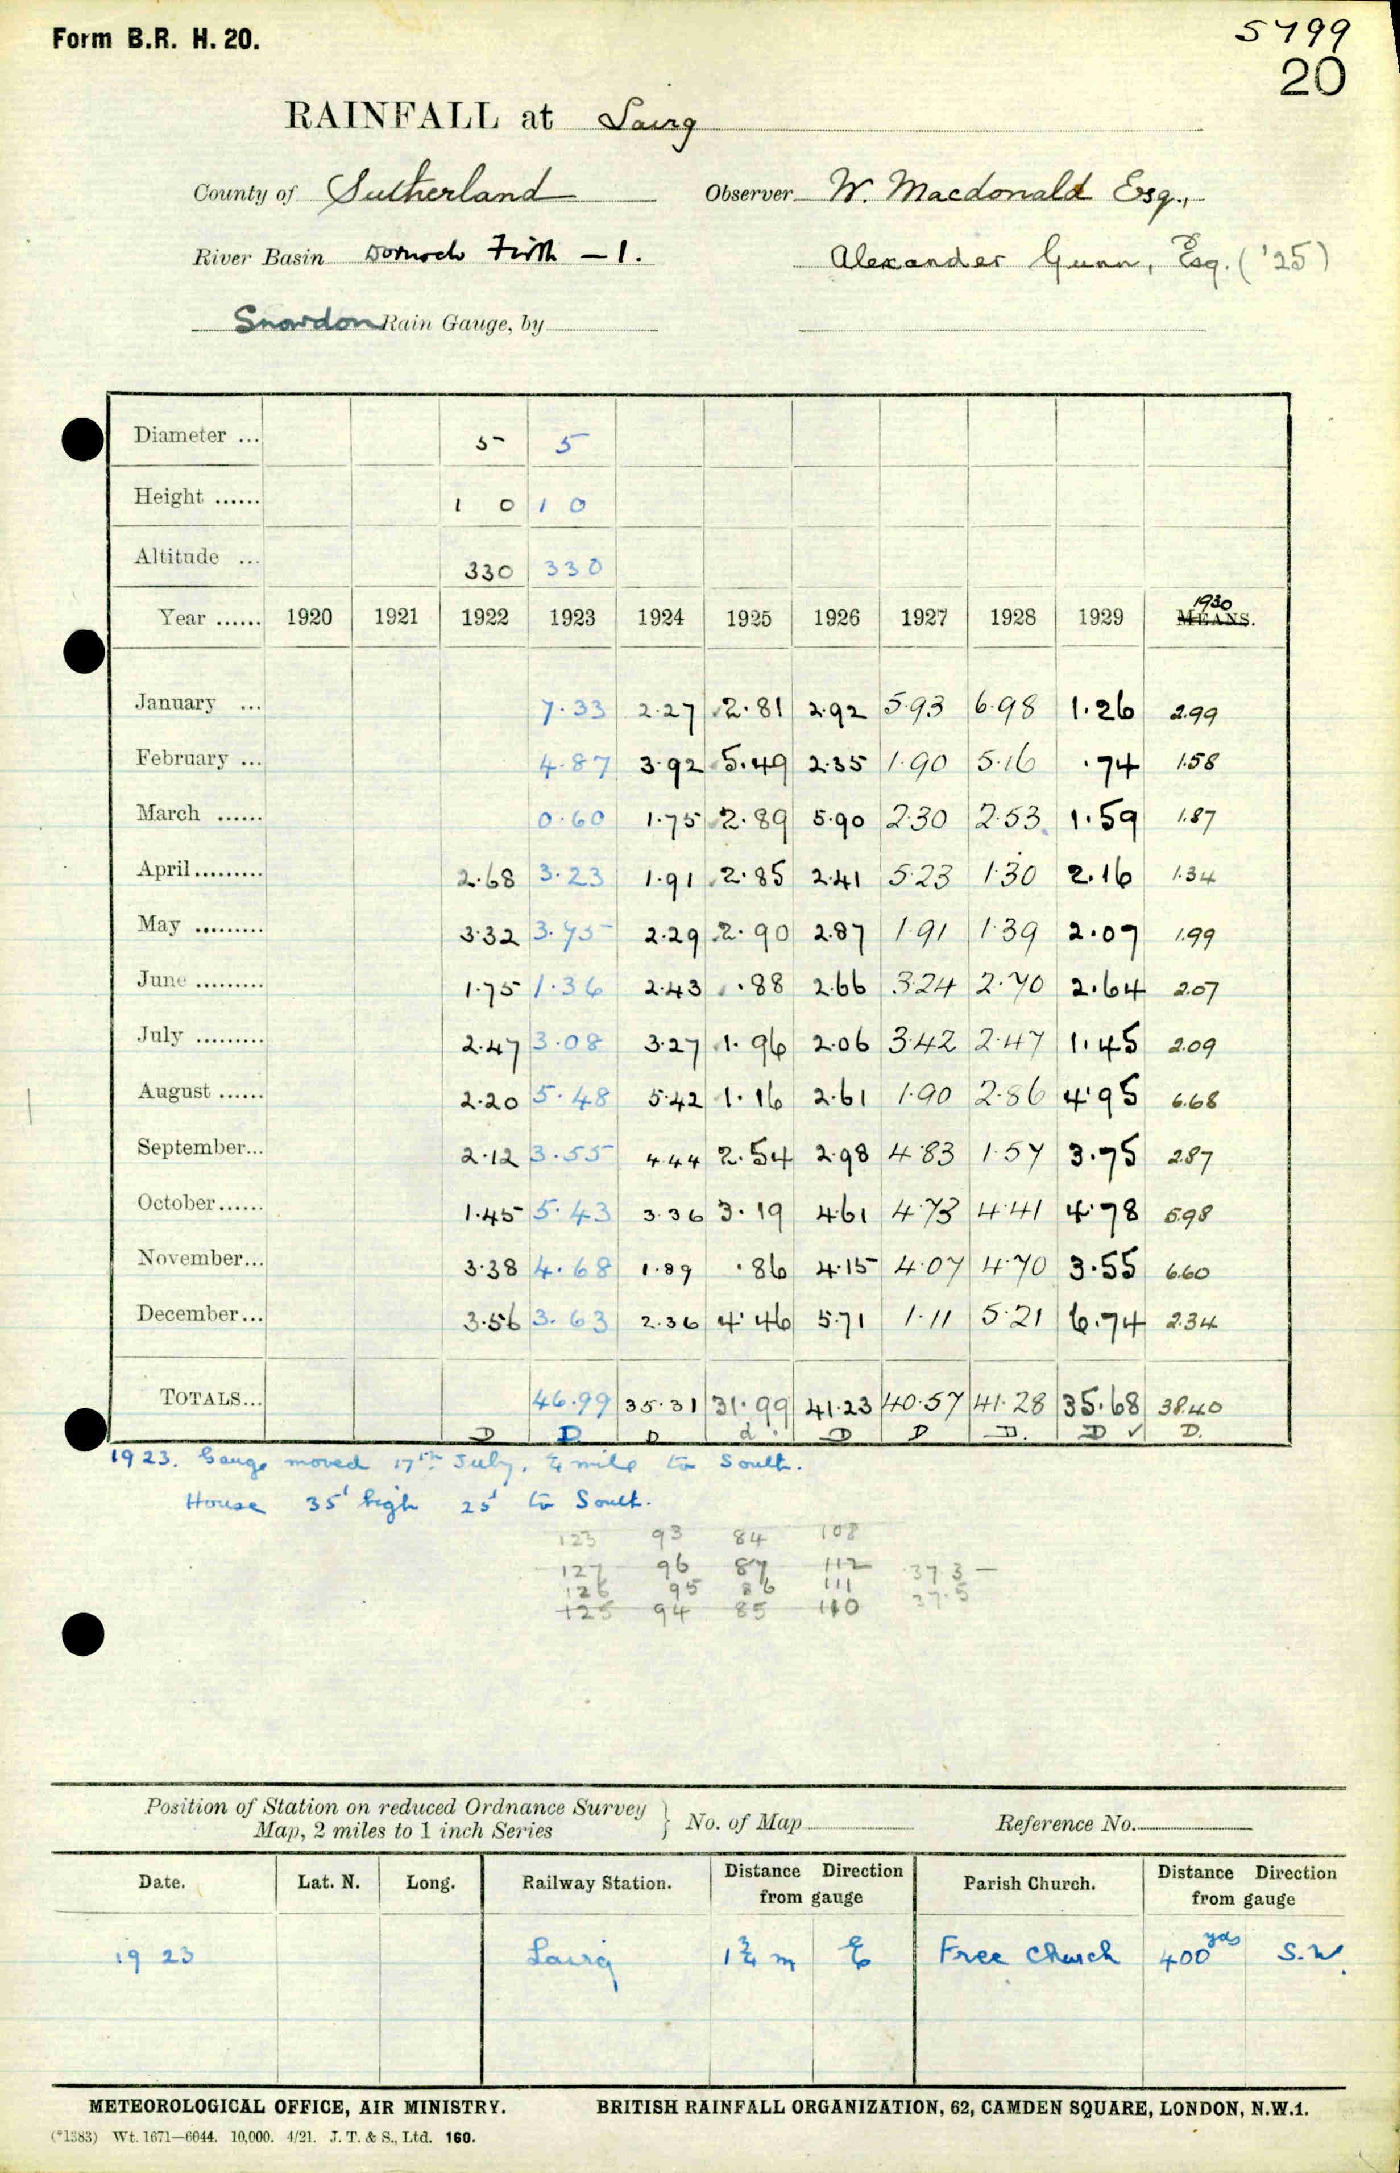 Form B.R. H. 20.
5799
20
RAINFALL at Lairg
County of Sutherland Observer W. Macdonald Esq.,
River Basin Dornoch Firth - 1. Alexander Gunn, Esq. ('25)
Snowdon Rain Gauge, by
Diameter ... 5 5
Height ...... 1 0 1 0
Altitude ... 330 330
Year ...... 1920 1921 1922 1923 1924 1925 1926 1927 1928 1929 1930 MEANS.
January ... 7.33 2.27 2.81 2.92 5.93 6.98 1.26 2.99
February ... 4.87 3.92 5.49 2.35 1.90 5.16 .74 1.58
March ...... 0.60 1.75 2.89 5.90 2.30 2.53 1.59 1.87
April......... 2.68 3.23 1.91 2.85 2.41 5.23 1.30 2.16 1.34
May ......... 3.32 3.75 2.29 2.90 2.87 1.91 1.39 2.07 1.99
June ......... 1.75 1.36 2.43 .88 2.66 3.24 2.70 2.64 2.07
July ......... 2.47 3.08 3.27 1.96 2.06 3.42 2.47 1.45 2.09
August ...... 2.20 5.48 5.42 1.16 2.61 1.90 2.86 4.95 6.68
September... 2.12 3.55 4.44 2.54 2.98 4.83 1.57 3.75 2.87
October...... 1.45 5.43 3.36 3.19 4.61 4.73 4.41 4.78 5.98
November... 3.38 4.68 1.89 .86 4.15 4.07 4.70 3.55 6.60
December... 3.56 3.63 2.36 4.46 5.71 1.11 5.21 6.74 2.34
TOTALS... 46.99 35.31 31.99 41.23 40.57 41.28 35.68 38.40
D D D d. D D D. D ✓ D.
1923. Gauge moved 17th July, ¼ mile to South.
House 35' high 25' to South.
123 93 84 108
127 96 87 112 37.3 -
126 95 86 111 37.5
125 94 85 110
Position of Station on reduced Ordnance Survey
Map, 2 miles to 1 inch Series } No. of Map Reference No.
Date. Lat. N. Long. Railway Station. Distance Direction from gauge Parish Church. Distance Direction from gauge
1923 Lairg 1¾ m E Free Church 400 yds S.W.
METEOROLOGICAL OFFICE, AIR MINISTRY. BRITISH RAINFALL ORGANIZATION, 62, CAMDEN SQUARE, LONDON, N.W.1.
(*1383) Wt. 1671—6044. 10,000. 4/21. J. T. & S., Ltd. 160.